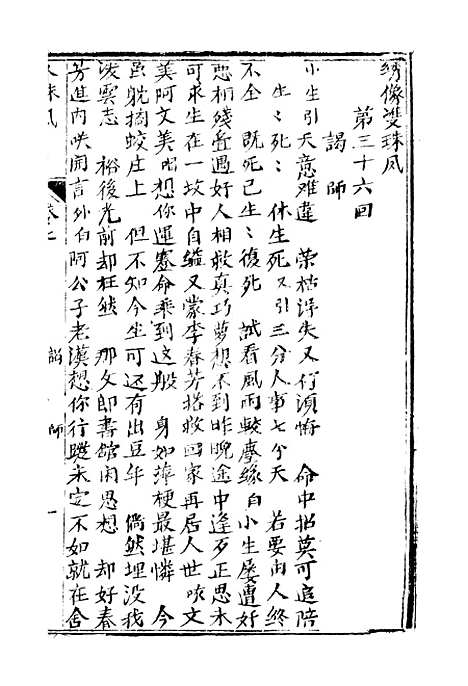 绣像双珠凤
第三十六回
謁師
小生引天意难違 荣枯得失又行須悔 命中招莫可追陪
生〻死〻 休生死又引三分人事七分天 若要由人終
不全 既死已生〻復死 試看風雨轅摩缘白小生屡遭奸
惡相殘害遇好人相救真巧夢想不到昨晚途中逢歹正思木
可求生在一坟中自縊又蒙李春芳搭救回家再居人世咳文
美阿文美咀想你運蹇命乘到这般 身如萍梗最堪憐 今
虽躭擱蛟庄上 但不知今生可还有出豆年 倘然埋没我
凌雲志 裕後光前却枉然 那文郎書館闲思想 却好秦
芳進内唉闻言外白阿公子老漢想你行蹤未定不如就在舍
珠凤
卷七
謁師
一